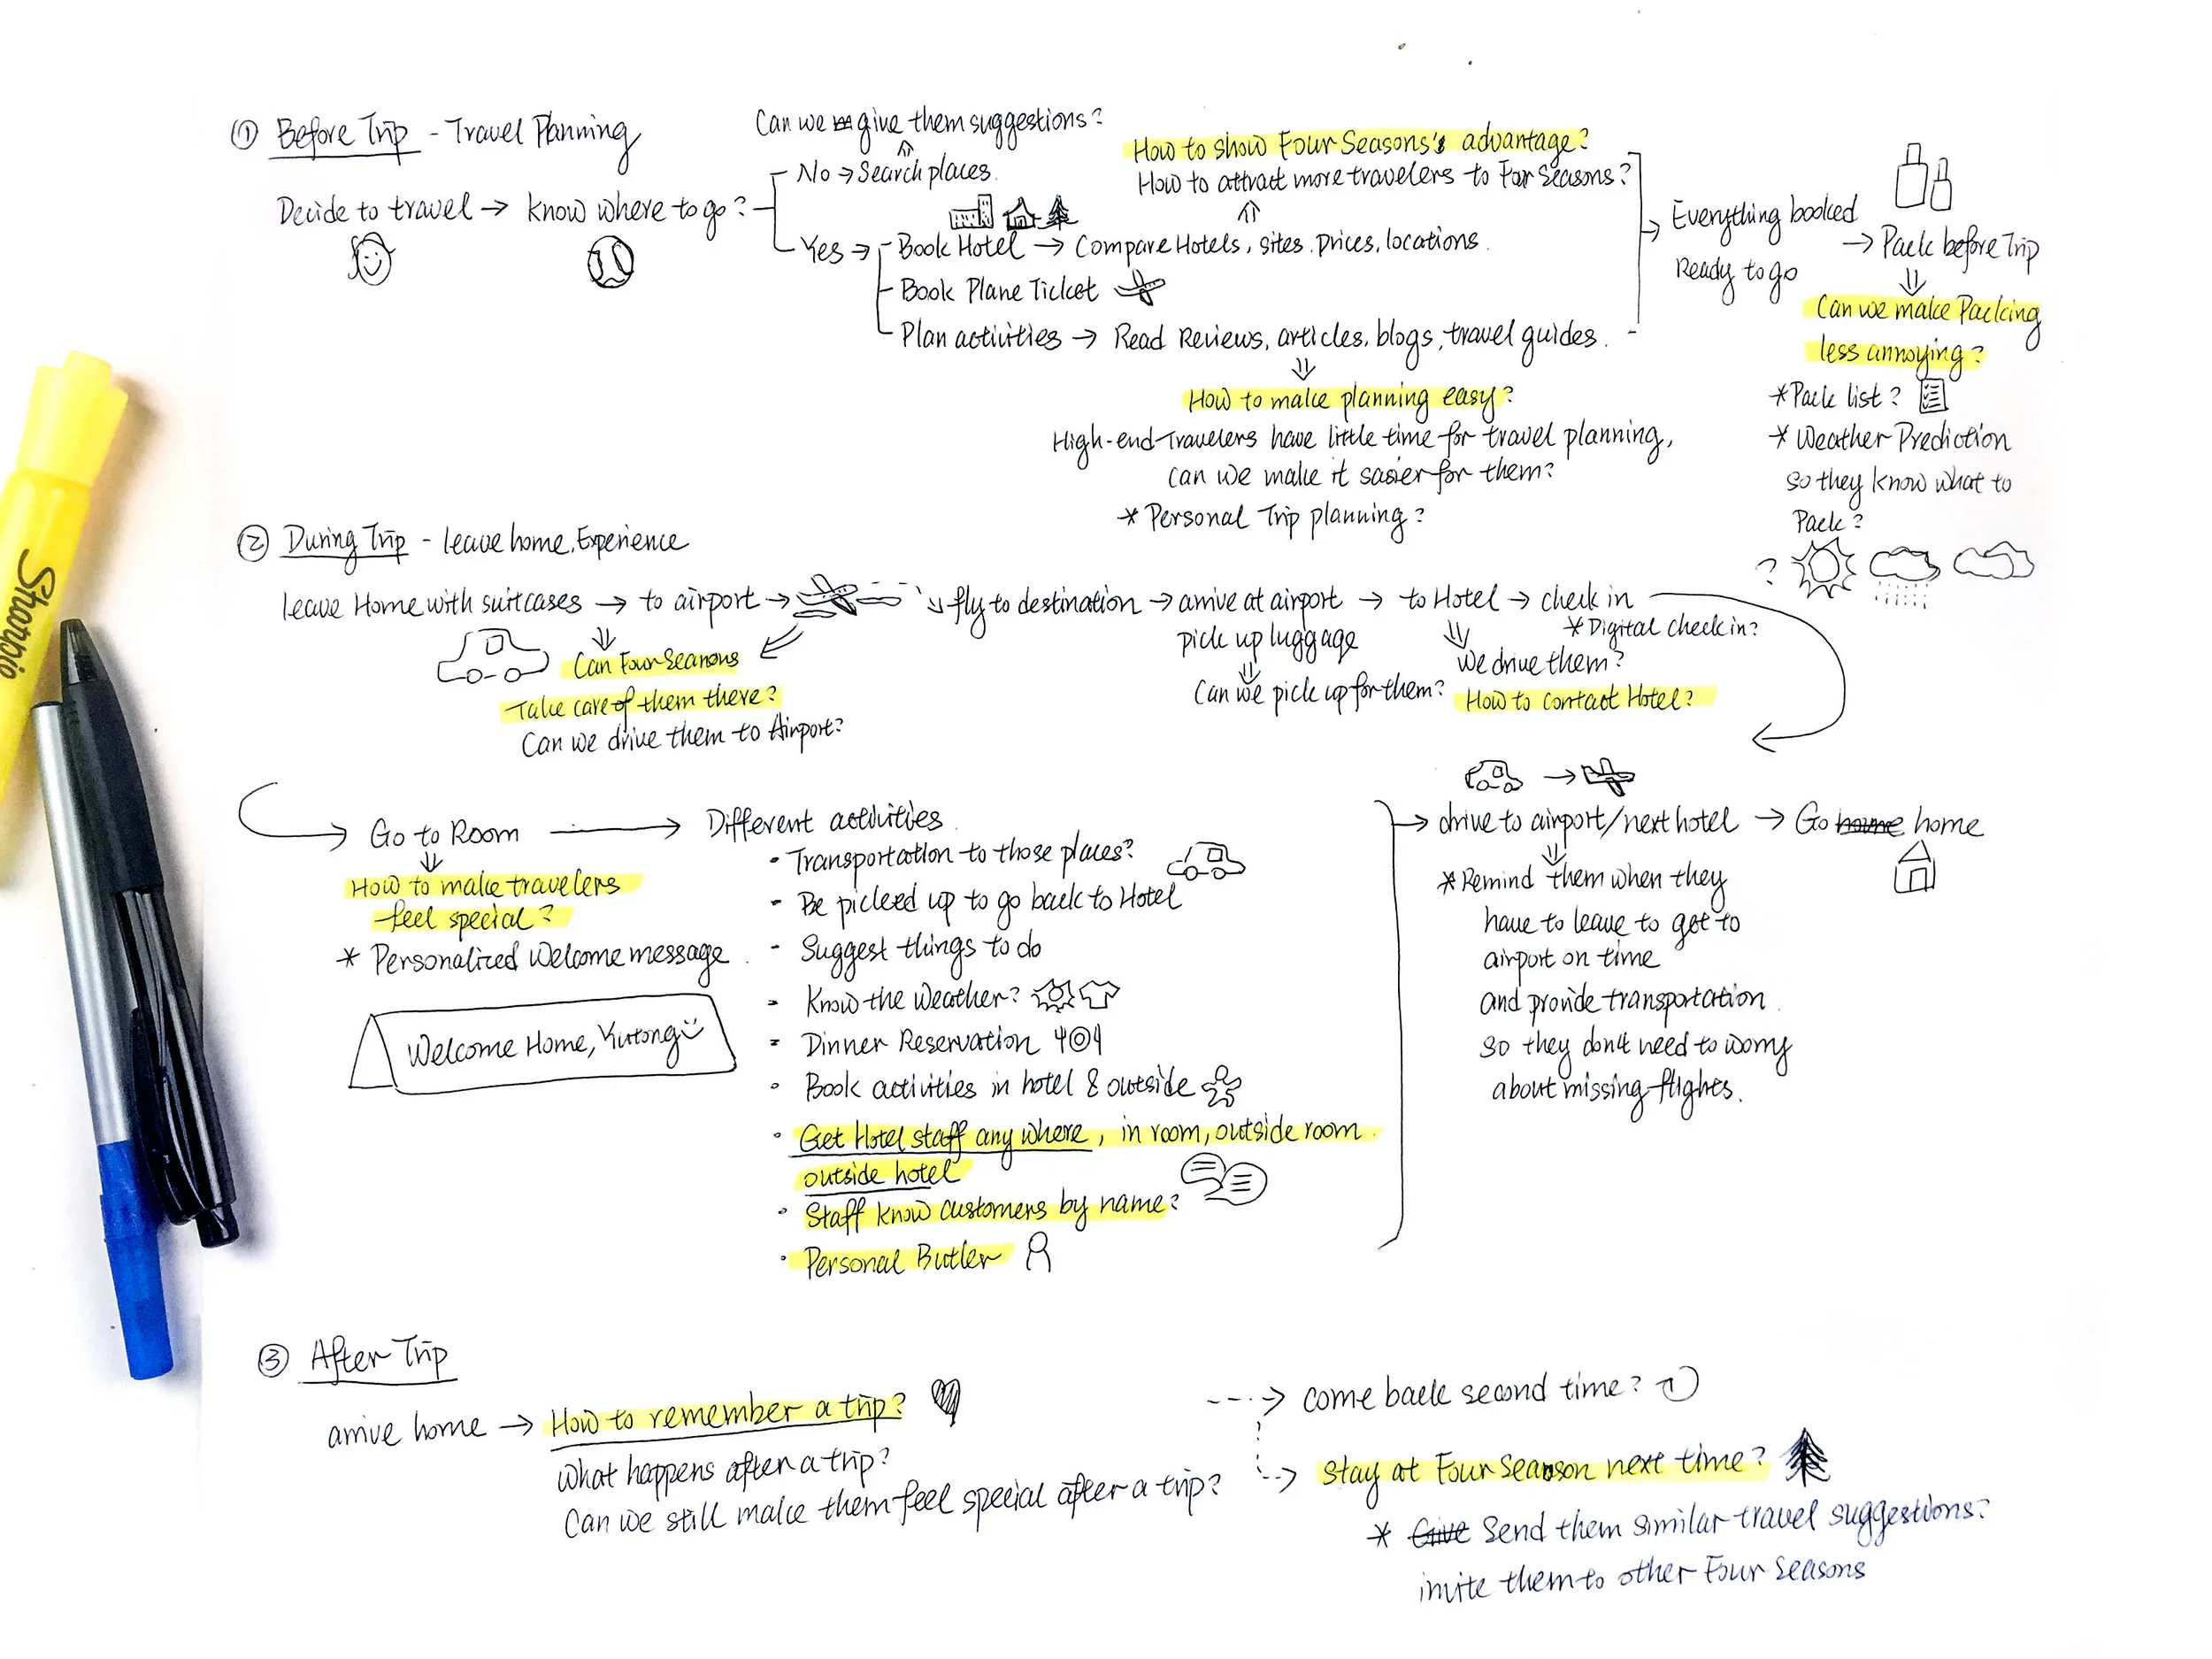 ① Before Trip - Travel Planning
Can we give them suggestions?
No → Search places.
Decide to travel → know where to go?
How to show Four Seasons's advantage?
How to attract more travelers to Four Seasons?
Yes → Book Hotel → Compare Hotels, sites. Prices, locations.
Book Plane Ticket
Plan activities → Read Reviews, articles, blogs, travel guides.
How to make planning easy?
High-end-Travelers have little time for travel planning,
can we make it easier for them?
* Personal Trip planning?
→ Everything booked
Ready to go
→ Pack before Trip
Can we make Packing
less annoying?
* Pack list?
* Weather Prediction
so they know what to
Pack?
?
② During Trip - leave home, Experience
leave Home with suitcases → to airport → fly to destination → arrive at airport → to Hotel → check in
Can Four Seasons
Take care of them there?
Can we drive them to Airport?
pick up luggage
Can we pick up for them?
We drive them?
How to contact Hotel?
* Digital check in?
→ Go to Room → Different activities.
How to make travelers
feel special?
* Personalized Welcome message
Welcome Home, Yutong
• Transportation to those places?
• Be picked up to go back to Hotel
• Suggest things to do
• Know the Weather?
• Dinner Reservation
• Book activities in hotel & outside
• Get Hotel staff any where, in room, outside room
outside hotel
• Staff know customers by name?
• Personal Butler
→ drive to airport/next hotel → Go home home
* Remind them when they
have to leave to get to
airport on time
and provide transportation.
so they don't need to worry
about missing flights.
③ After Trip
arrive home → How to remember a trip?
What happens after a trip?
Can we still make them feel special after a trip?
→ come back second time?
→ Stay at Four Season next time?
* Give Send them similar travel suggestions?
invite them to other Four Seasons
Sharpie